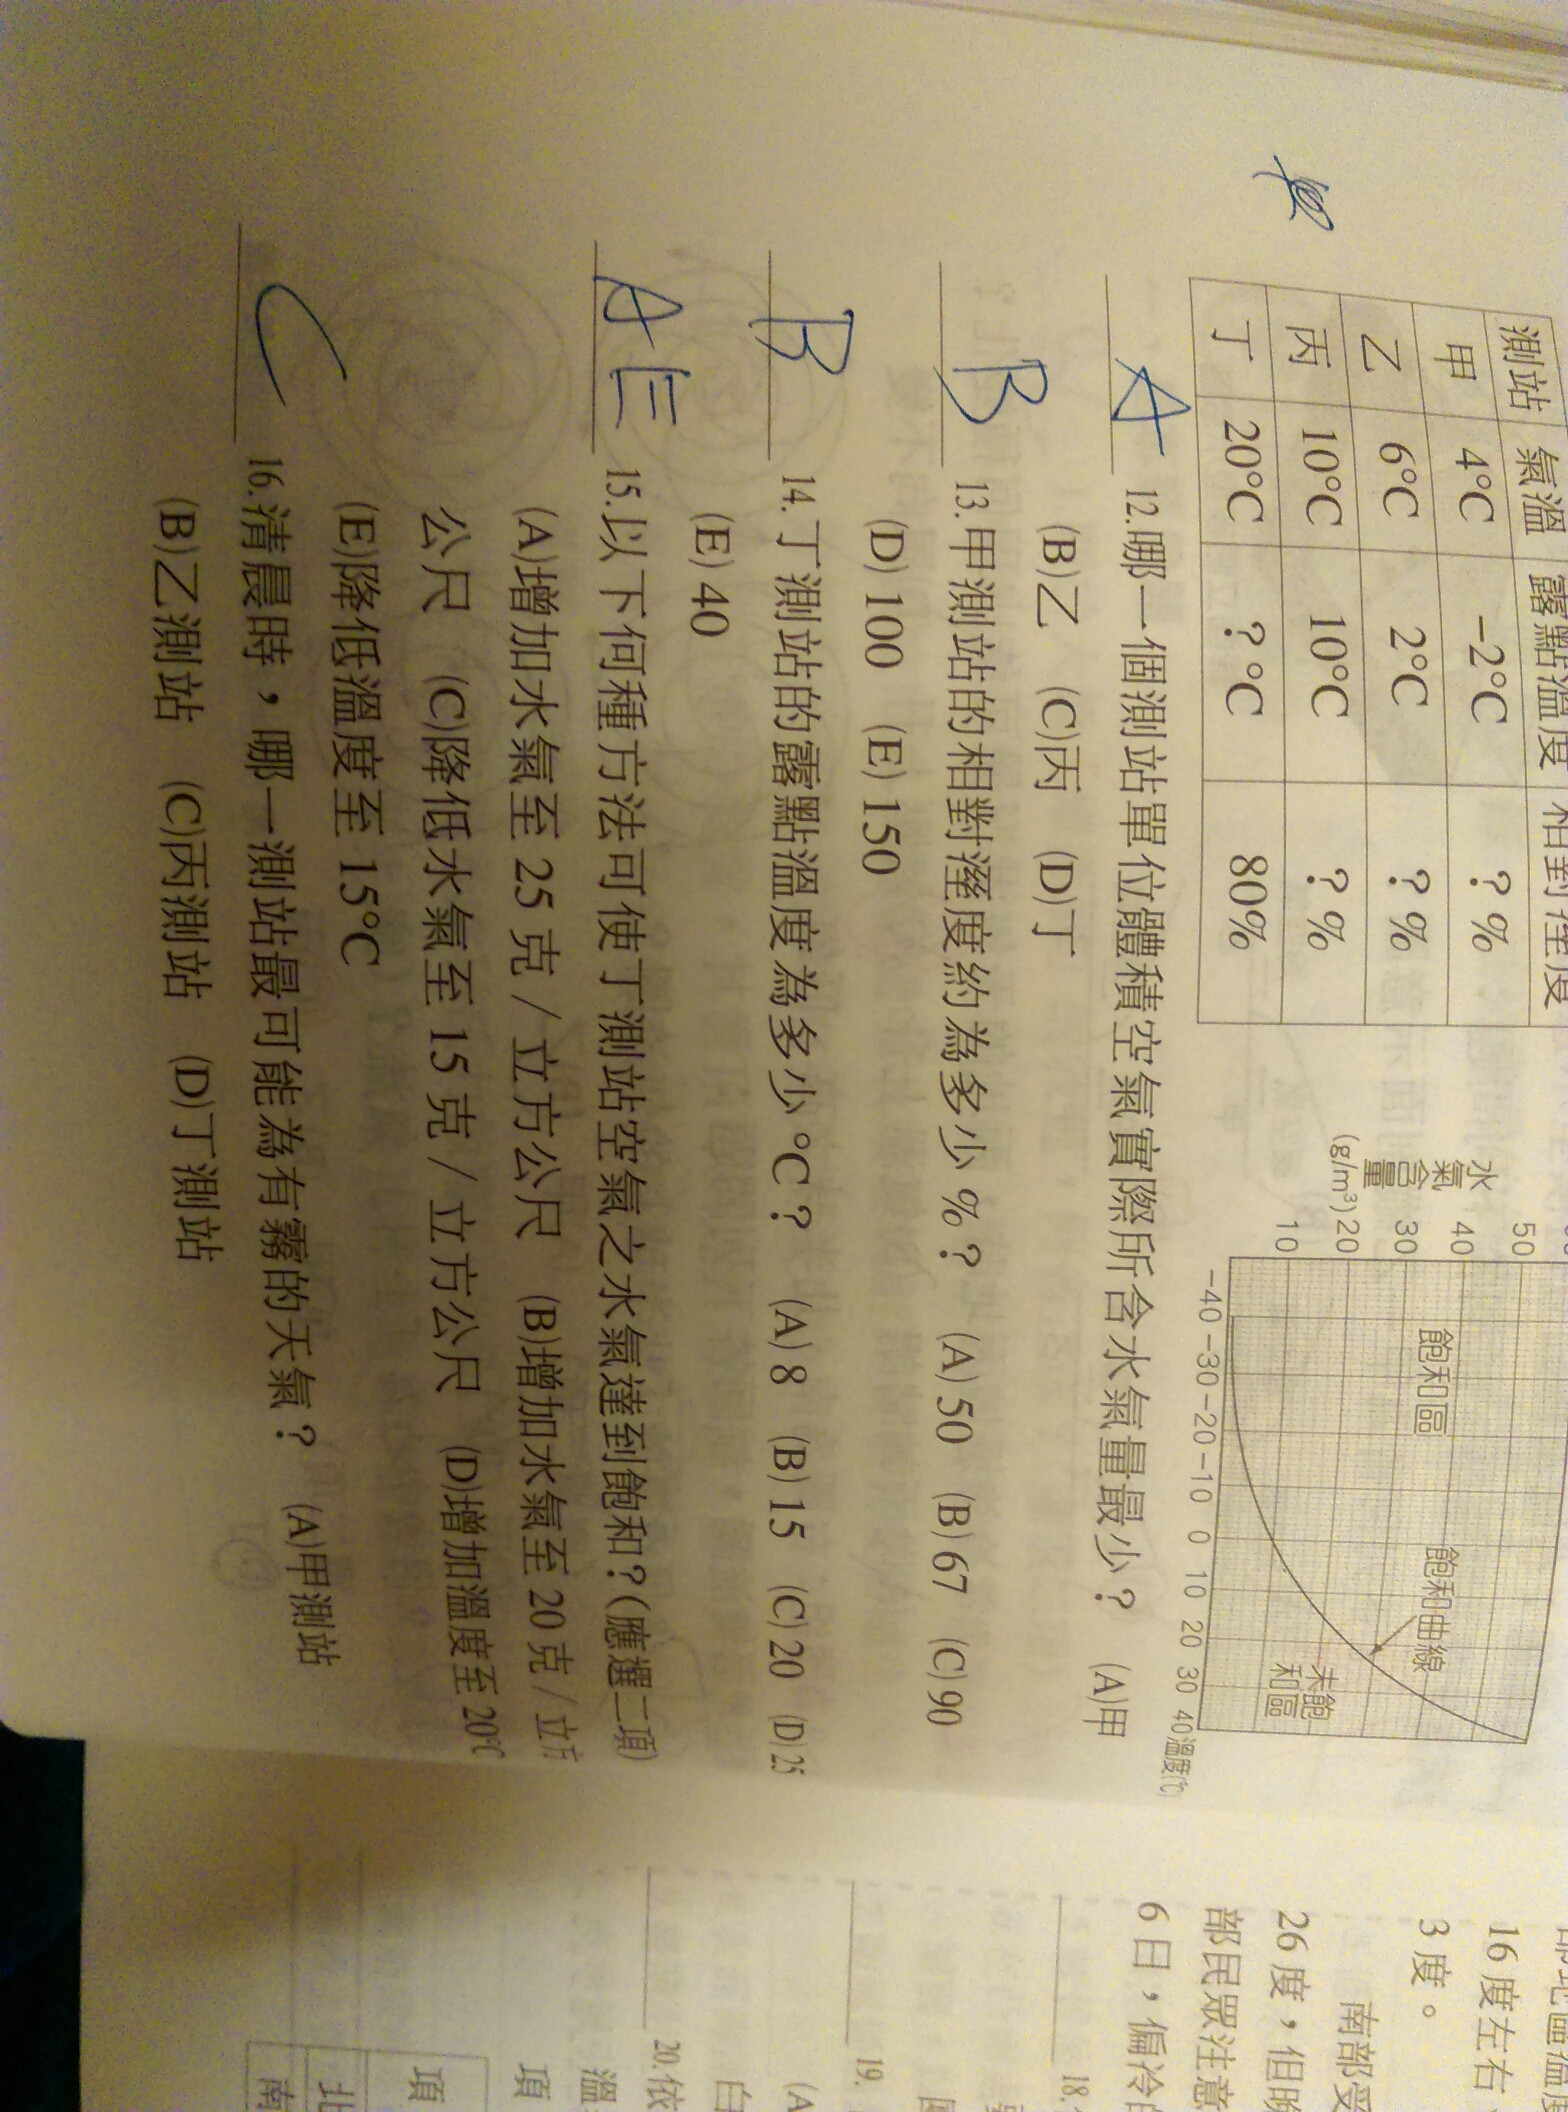 測站 氣溫 露點溫度 相對溼度
甲 4°C −2°C ?%
乙 6°C 2°C ?%
丙 10°C 10°C ?%
丁 20°C ?°C 80%
水氣含量
(g/m³)
50
40
30
20
10
−40 −30 −20 −10 0 10 20 30 40 溫度(℃)
飽和區
飽和曲線
未飽和區
A 12.哪一個測站單位體積空氣實際所含水氣量最少? (A)甲
(B)乙 (C)丙 (D)丁
B 13.甲測站的相對溼度約為多少%? (A) 50 (B) 67 (C) 90
(D) 100 (E) 150
B 14.丁測站的露點溫度為多少°C? (A) 8 (B) 15 (C) 20 (D) 25
(E) 40
AE 15.以下何種方法可使丁測站空氣之水氣達到飽和?(應選二項)
(A)增加水氣至 25 克/立方公尺 (B)增加水氣至 20 克/立方
公尺 (C)降低水氣至 15 克/立方公尺 (D)增加溫度至 20℃
(E)降低溫度至 15°C
C 16.清晨時,哪一測站最可能為有霧的天氣? (A)甲測站
(B)乙測站 (C)丙測站 (D)丁測站
16 度左右
3 度。
南部受
26 度,但
部民眾注意
6 日,偏冷
18.
19.
(A
白
20.依
溫
項
項
北
南